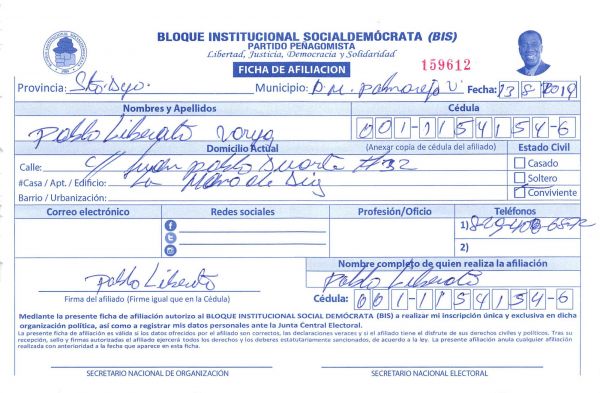 BLOQUE INSTITUCIONAL SOCIALDEMÓCRATA (BIS)
PARTIDO PEÑAGOMISTA
Libertad, Justicia, Democracia y Solidaridad
FICHA DE AFILIACION
159612
Provincia: Sto Dgo. Municipio: D.M. Palmarejo V. Fecha: 13-8-2019
Nombres y Apellidos Cédula
Pablo Liberato 001-1154154-6
Domicilio Actual (Anexar copia de cédula del afiliado) Estado Civil
Calle: C/ Juan pablo Duarte #32 Casado
#Casa / Apt. / Edificio: La Mano de Dios Soltero
Barrio / Urbanización: Conviviente
Correo electrónico Redes sociales Profesión/Oficio Teléfonos
1)
2)
Nombre completo de quien realiza la afiliación
Pablo Liberato Pablo Liberato
Firma del afiliado (Firme igual que en la Cédula) Cédula: 001-1154154-6
Mediante la presente ficha de afiliación autorizo al BLOQUE INSTITUCIONAL SOCIAL DEMÓCRATA (BIS) a realizar mi inscripción única y exclusiva en dicha
organización política, así como a registrar mis datos personales ante la Junta Central Electoral.
La presente ficha de afiliación es válida si los datos ofrecidos por el afiliado son correctos, las declaraciones veraces y si el afiliado tiene el disfrute de sus derechos civiles y políticos. Tras su
recepción, sello y firmas autorizadas el afiliado ejercerá todos los derechos y los deberes estatutariamente sancionados, de acuerdo a la ley. La presente afiliación anula cualquier afiliación
realizada con anterioridad a la fecha que aparece en esta ficha.
SECRETARIO NACIONAL DE ORGANIZACIÓN SECRETARIO NACIONAL ELECTORAL